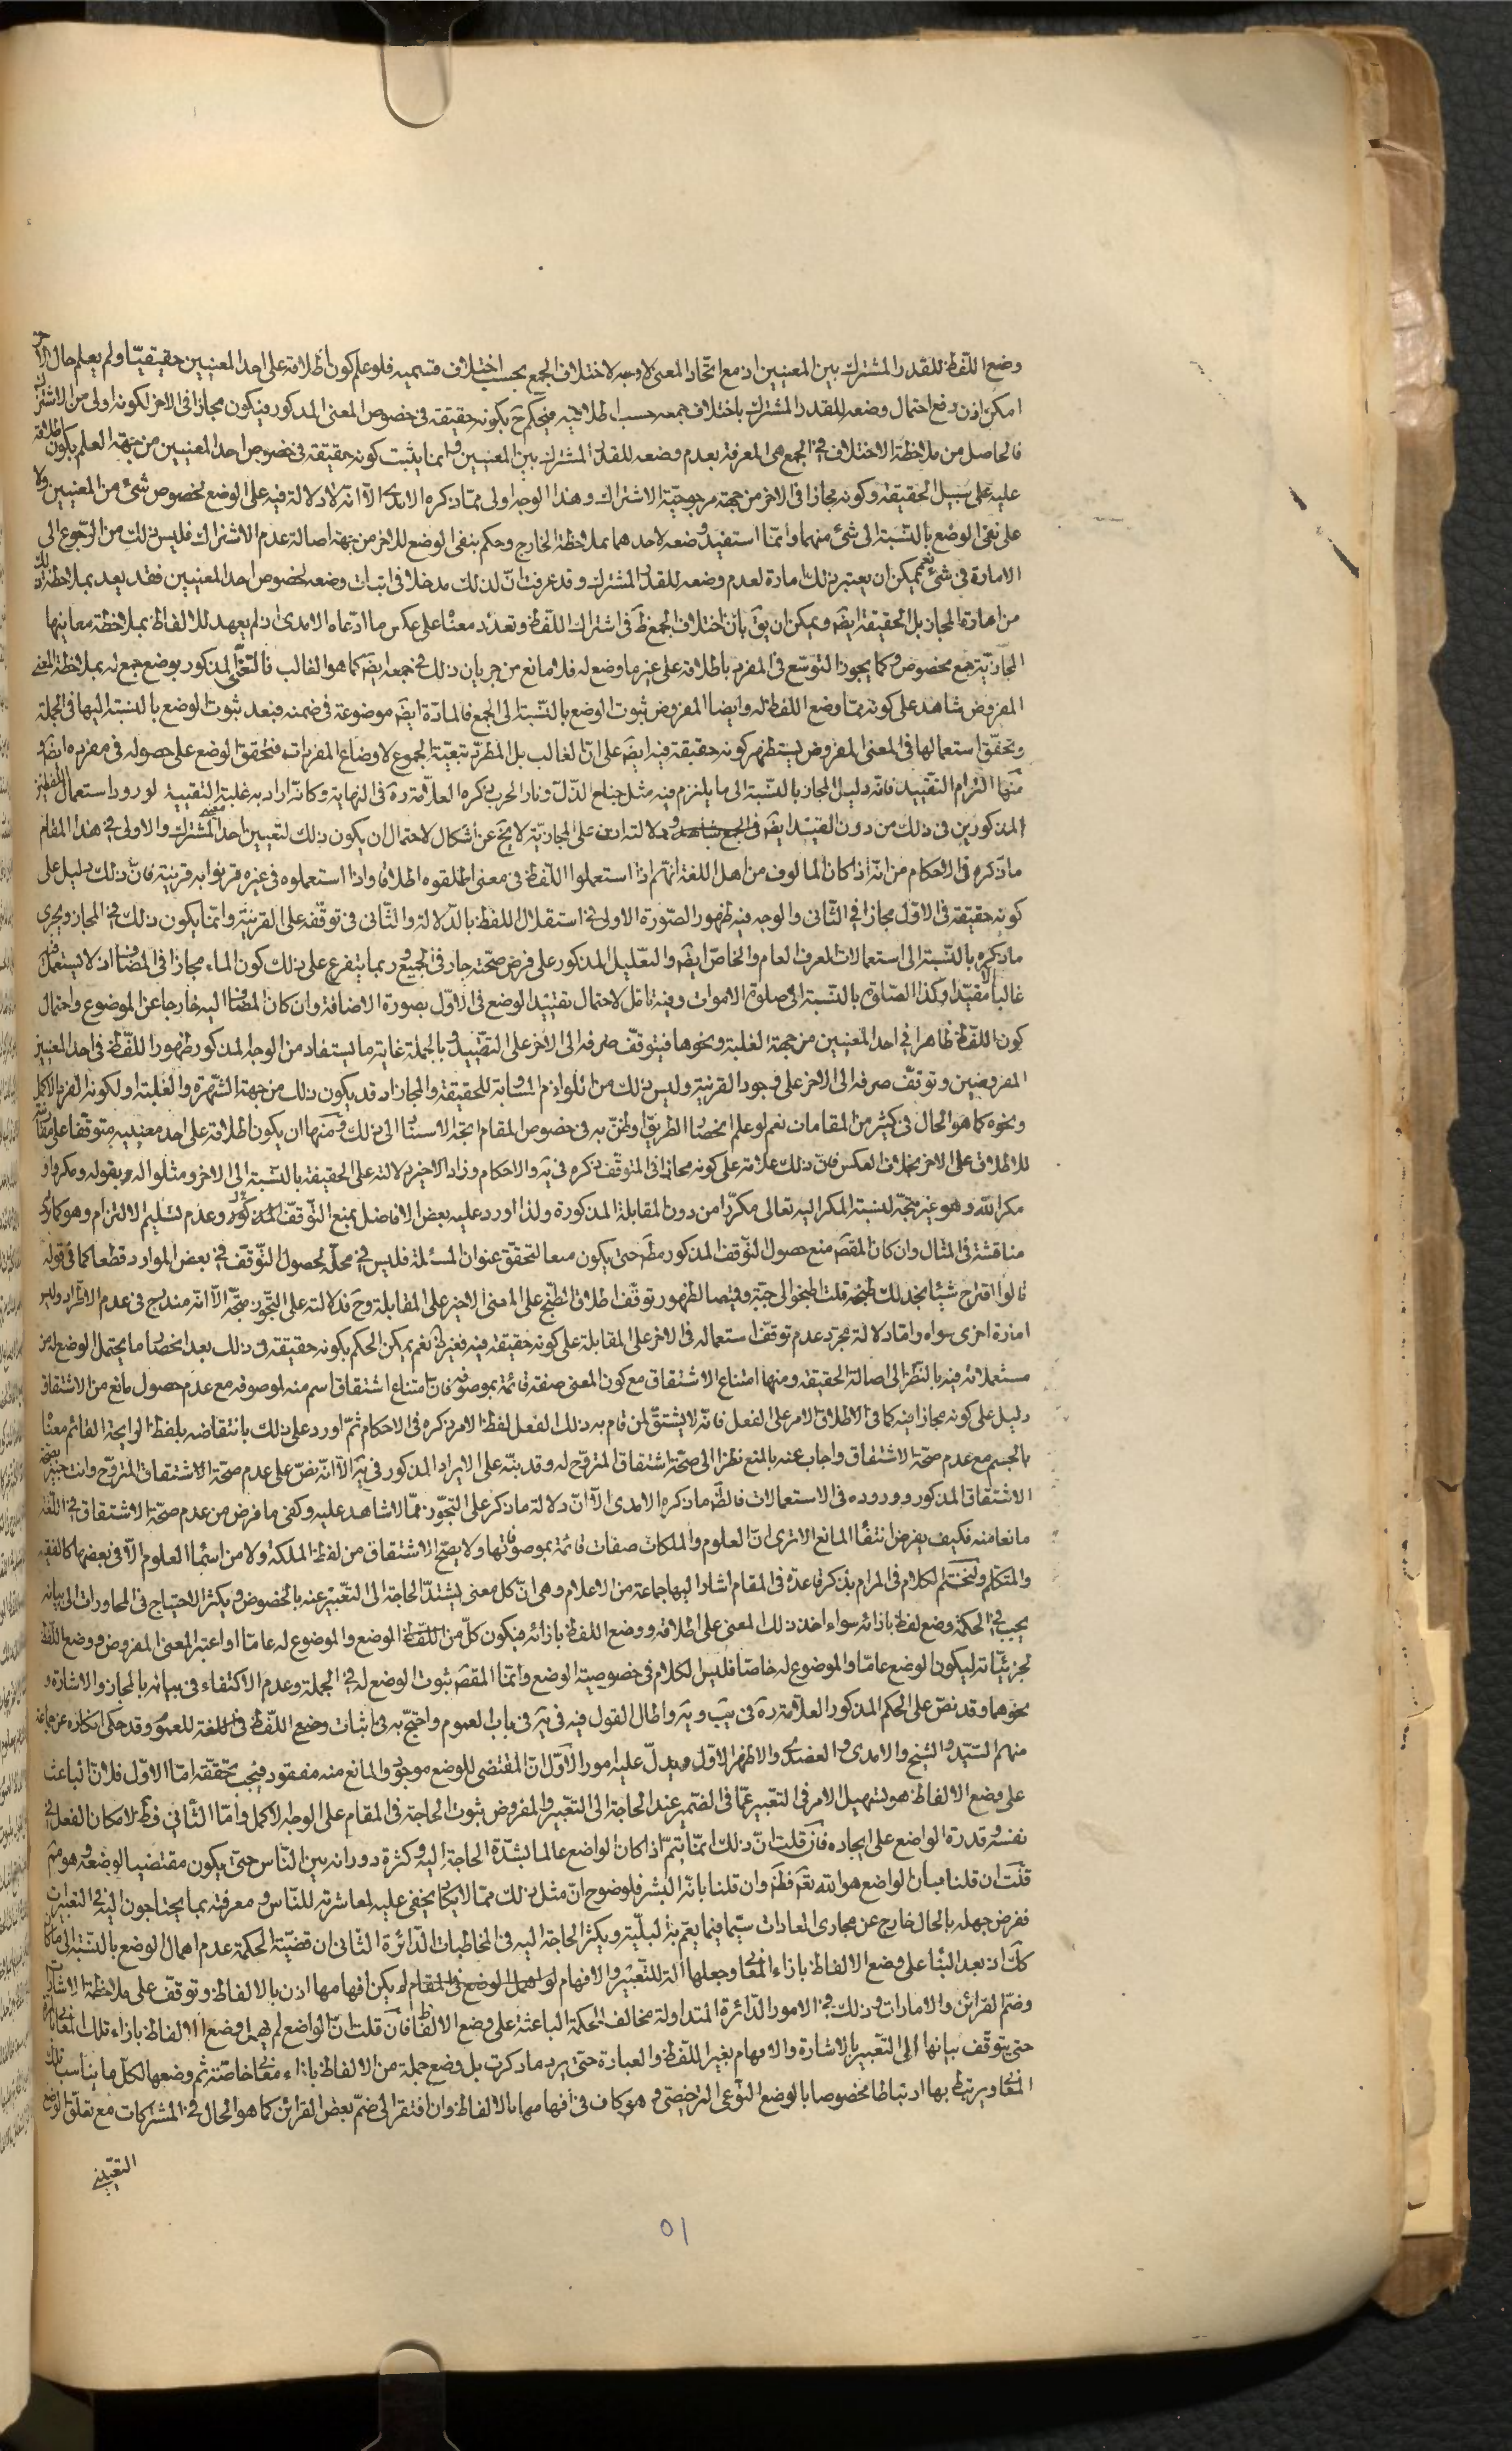 وضع اللّفظ للقدر المشترك بين المعنيين اذ مع اتحاد المعنى لا وجه لاختلاف الجمع بحسب اختلاف قسميه فلو علم كون اطلاقه على احد المعنيين حقيقيّا ولم يعلم حال الآخر
امكن اذن دفع احتمال وضعه للقدر المشترك باختلاف جمعه حسب اطلاقيه فيحكم ح بكونه حقيقة في خصوص المعنى المذكور فيكون مجازا في الاخر لكونه اولى من الاشتراك
فالحاصل من ملاحظة الاختلاف في الجمع هي المعرفة بعدم وضعه للقدر المشترك بين المعنيين وانما يثبت كونه حقيقة في خصوص احد المعنيين من جهة العلم بكون اطلاقه
عليه على سبيل الحقيقة وكونه مجازا في الاخر من جهة مرجوحيّة الاشتراك وهذا الوجه اولى ممّا ذكره الامدى الّا انّه لا دلالة فيه على الوضع لخصوص شىء من المعنيين ولا
على نفى الوضع بالنّسبة الى شىء منهما وانّما استفيد وضعه لاحدهما بملاحظة الخارج وحكم بنفى الوضع للاخر من جهة اصالة عدم الاشتراك فليس ذلك من الرّجوع الى
الامارة في شىء نعم يمكن ان يعتبر ذلك امارة لعدم وضعه للقدر المشترك وقد عرفت انّ لذلك مدخلا في اثبات وضعه لخصوص احد المعنيين فقد يعد بملاحظة ذلك
من امارة المجاز بل الحقيقة ايضَ ويمكن ان يقَ بان اختلاف الجمع ظَ في اشتراك اللّفظ وتعدّد معناه على عكس ما ادّعاه الامدى اذ لم يعهد للالفاظ بملاحظة معانيها
المجازيّة جمع مخصوص وكما يجوز التوسّع في المفرد باطلاقه على غير ما وضع له فلا مانع من جريان ذلك في جمعه ايضَ كما هو الغالب فالتعدّى المذكور بوضع جمع له بملاحظة المعنى
المفروض شاهد على كونه ممّا وضع اللفظ له وايضا المفروض ثبوت الوضع بالنّسبة الى الجمع فالمادّة ايضَ موضوعة في ضمنه فبعد ثبوت الوضع بالنسبة اليها في الجملة
وتحقّق استعمالها في المعنى المفروض يستظهر كونه حقيقة فيه ايضَ على انّ الغالب بل المطرد تبعيّة الجموع لاوضاع المفردات فتحقق الوضع على حصوله في مفرده ايضَ و
منها التزام التقييد فانّه دليل المجاز بالنّسبة الى ما يلتزم فيه مثل جناح الذّلّ ونار الحرب ذكره العلّامة ره في النهاية وكانّه اراد به غلبة التقييد لورود استعمال اللفظين
المذكورين في ذلك من دون القيد ايضَ ودلالته اذن على المجازيّة لا يخَ عن اشكال لاحتمال ان يكون ذلك لتعيين احد معنيى المشترك والاولى في هذا المقام
ما ذكره في الاحكام من انّه اذا كان المالوف من اهل اللغة انّهم اذا استعملوا اللّفظ في معنى اطلقوه اطلاقا واذا استعملوه في غيره قرنوا به قرينة فانّ ذلك دليل على
كونه حقيقة في الاوّل مجازا في الثّانى والوجه فيه ظهور الصّورة الاولى في استقلال اللفظ بالدّلالة والثّانى في توقّفه على القرينة وانّما يكون ذلك في المجاز ويجرى
ما ذكره بالنّسبة الى استعمالات العرف العام والخاصّ ايضَ والتعّليل المذكور على فرض صحّته جار في الجميع وربما يتفرع على ذلك كون الماء مجازا في المضاف اذ لا يستعمل فيه
غالبا الّا مقيّدا وكذا الصّلوة بالنّسبة الى صلوة الاموات وفيه تامّل لاحتمال تقييد الوضع في الاوّل بصورة الاضافة وان كان المضاف اليه خارجا عن الموضوع واحتمال
كون اللّفظ ظاهرا في احد المعنيين من جهة الغلبة ونحوها فيتوقّف صرفه الى الاخر على التقييد وبالجملة غاية ما يستفاد من الوجه المذكور ظهور اللّفظ في احد المعنيين
المفروضين وتوقّف صرفه الى الاخر على وجود القرينة وليس ذلك من اللوازم المساوية للحقيقة والمجاز اذ قد يكون ذلك من جهة الشّهرة والغلبة او لكونه الفرد الاكمل
ونحوه كما هو الحال في كثير من المقامات نعم لو علم انحصار الطريق او ظنّ به في خصوص المقام اتجه الاستناد الى ذلك ومنها ان يكون اطلاقه على احد معنييه متوقّفا على مقارنته
للاطلاق على الاخر بخلاف العكس فانّ ذلك علامة على كونه مجازا في المتوقّف ذكره في يَه والاحكام وزاد الاخير دلالته على الحقيقة بالنّسبة الى الاخر ومثّلوا له بقوله ومكروا و
مكر الله وهو غير متجّه لنسبة المكر اليه تعالى مكرّرا من دون المقابلة المذكورة ولذا اورد عليه بعض الافاضل بمنع التّوقّف المذكور وعدم تسليم الالتزام وهو كما ترى
مناقشة في المثال وان كان المقصَ منع حصول التّوقّف المذكور مطَ حتى يكون منعا لتحقّق عنوان المسئلة فليس في محلّه لحصول التّوقّف في بعض الموارد قطعا كما في قوله
قالوا اقترح شيئا نجد لك طبخه قلت اطبخوا لى جبّة وقميصا لظهور توقّف اطلاق الطبخ على المعنى الاخير على المقابلة وح فدلالته على التجّوز متجّه الّا انّه مندرج في عدم الاطّراد وليس
امارة اخرى سواه وامّا دلالة مجرّد عدم توقّف استعماله في الاخر على المقابلة على كونه حقيقة فيه فغير ظَ نعم يمكن الحكم بكونه حقيقة في ذلك بعد انحصار ما يحتمل الوضع له من
مستعملاته فيه بالنّظر الى اصالة الحقيقة ومنها امتناع الاشتقاق مع كون المعنى صفة قائمة بموصوفه فانّ امتناع اشتقاق اسم منه لموصوفه مع عدم حصول مانع من الاشتقاق
دليل على كونه مجازا فيه كما في اطلاق الامر على الفعل فانّه لا يشتقّ لمن قام به ذلك الفعل لفظ الامر ذكره في الاحكام ثمّ اورد على ذلك بانتقاضه بلفظ الرايحة القائم معناه
بالجسم مع عدم صحّة الاشتقاق واجاب عنه بالمنع نظرا الى صحّة اشتقاق المتروّح له وقد بنّه على الايراد المذكور في يَه الّا انّه نصّ على عدم صحّة الاشتقاق المتروّح وانت خبير بصحّة
الاشتقاق المذكور ووروده في الاستعمالات فالظَ ما ذكره الامدى الّا انّ دلالة ما ذكر على التجّوز ممّا لا شاهد عليه وكفى ما فرض من عدم صحّة الاشتقاق في اللّغة
مانعا منه فكيف يفرض انتفاء المانع الا ترى انّ العلوم والملكات صفات قائمة بموصوفاتها ولا يصحّ الاشتقاق من لفظ الملكة ولا من اسماء العلوم الّا في بعضها كالفقه
والمتكلّم ولنختم الكلام في المرام بذكر قاعدة في المقام اشار اليها جماعة من الاعلام وهى انّ كل معنى يشتدّ الحاجة الى التعّبير عنه بالخصوص ويكثر الاحتياج في المحاورات الى بيانه
يجب في الحكمة وضع لفظ بازائه سواء اخذ ذلك المعنى على اطلاقه ووضع اللفظ بازائه فيكون كلّ من الوضع والموضوع له عامّا او اعتبر المعنى المفروض ووضع اللّفظ
لجزئيّاته ليكون الوضع عامّا والموضوع له خاصّا فليس الكلام في خصوصية الوضع وانّما المقصَ ثبوت الوضع له في الجملة وعدم الاكتفاء في بيانه بالمجاز والاشارة و
نحوهما وقد نصّ على الحكم المذكور العلّامة ره في يب ويَه واطال القول فيه في يَه في باب العموم واحتجّ به في اثبات وضع اللّفظ في اللغة للعموم وقد حكى انكاره عن جماعة
منهم السّيّد والشيخ والامدى والعضدى والاظهر الاوّل ويدلّ عليه امور الاوّل انّ المقتضى للوضع موجود والمانع منه مفقود فيجب تحققه امّا الاوّل فلانّ الباعث
على وضع الالفاظ هو تسهيل الامر في التعّبير عمّا في الضّمير عند الحاجة الى التعّبير والمفروض ثبوت الحاجة في المقام على الوجه الاكمل وامّا الثّانى فظَ لامكان الفعل في
نفسه وقدرة الواضع على ايجاده فان قلت انّ ذلك انّما يتمّ اذا كان الواضع عالما بشدّة الحاجة اليه وكثرة دورانه بين النّاس حتىّ يكون مقتضيا لوضعه وهو مم
قلت ان قلنا بان الواضع هو الله تعَ فظَ وان قلنا بانّه البشر فلوضوح انّ مثل ذلك ممّا لا يكاد يخفى عليه لمعاشرته للنّاس ومعرفته بما يحتاجون اليه في التعبيرات
ففرض جهله بالحال خارج عن مجارى العادات سيّما فيما يعمّ به البلّية ويكثر الحاجة اليه في المخاطبات الدّائرة الثّانى ان قضيّة الحكمة عدم اهمال الوضع بالنّسبة الى ما كان
كك اذ بعد البناء على وضع الالفاظ بازاء المعانى وجعلها آلة للتّعبير والافهام لو اهمل الوضع في المقام لم يكن افهامها اذن بالالفاظ وتوقّف على ملاحظة الاشارة
وضمّ القرائن والامارات وذلك في الامور الدّائرة المتداولة مخالف للحكمة الباعثة على وضع الالفاظ فان قلت انّ الواضع لم يهمل وضع الالفاظ بازاء تلك المعانى
حتى يتوقّف بيانها الى التّعبير بالاشارة والافهام بغير اللّفظ والعبارة حتى يرد ما ذكرت بل وضع جملة من الالفاظ بازاء معانى خاصّة ثمّ وضعها لكلّ ما يناسب تلك
المعانى ويرتبط بها ارتباطا مخصوصا بالوضع النّوعى الترخيصى وهو كاف في افهامها بالالفاظ وان افتقر الى ضمّ بعض القرائن كما هو الحال في المشتركات مع تعلّق الوضع
التعّيينى
٥١